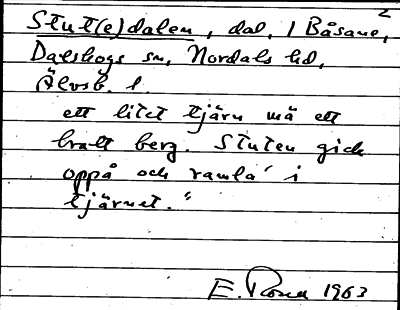 Stut(e)dalen, dal, 1 Båsane, 2
Dalskogs sn, Nordals hd,
Älvsb. l.
ett litet tjärn mä ett
bratt berg. Stuten gick
oppå och ramla' i
tjärnet."
E. Rosen 1963